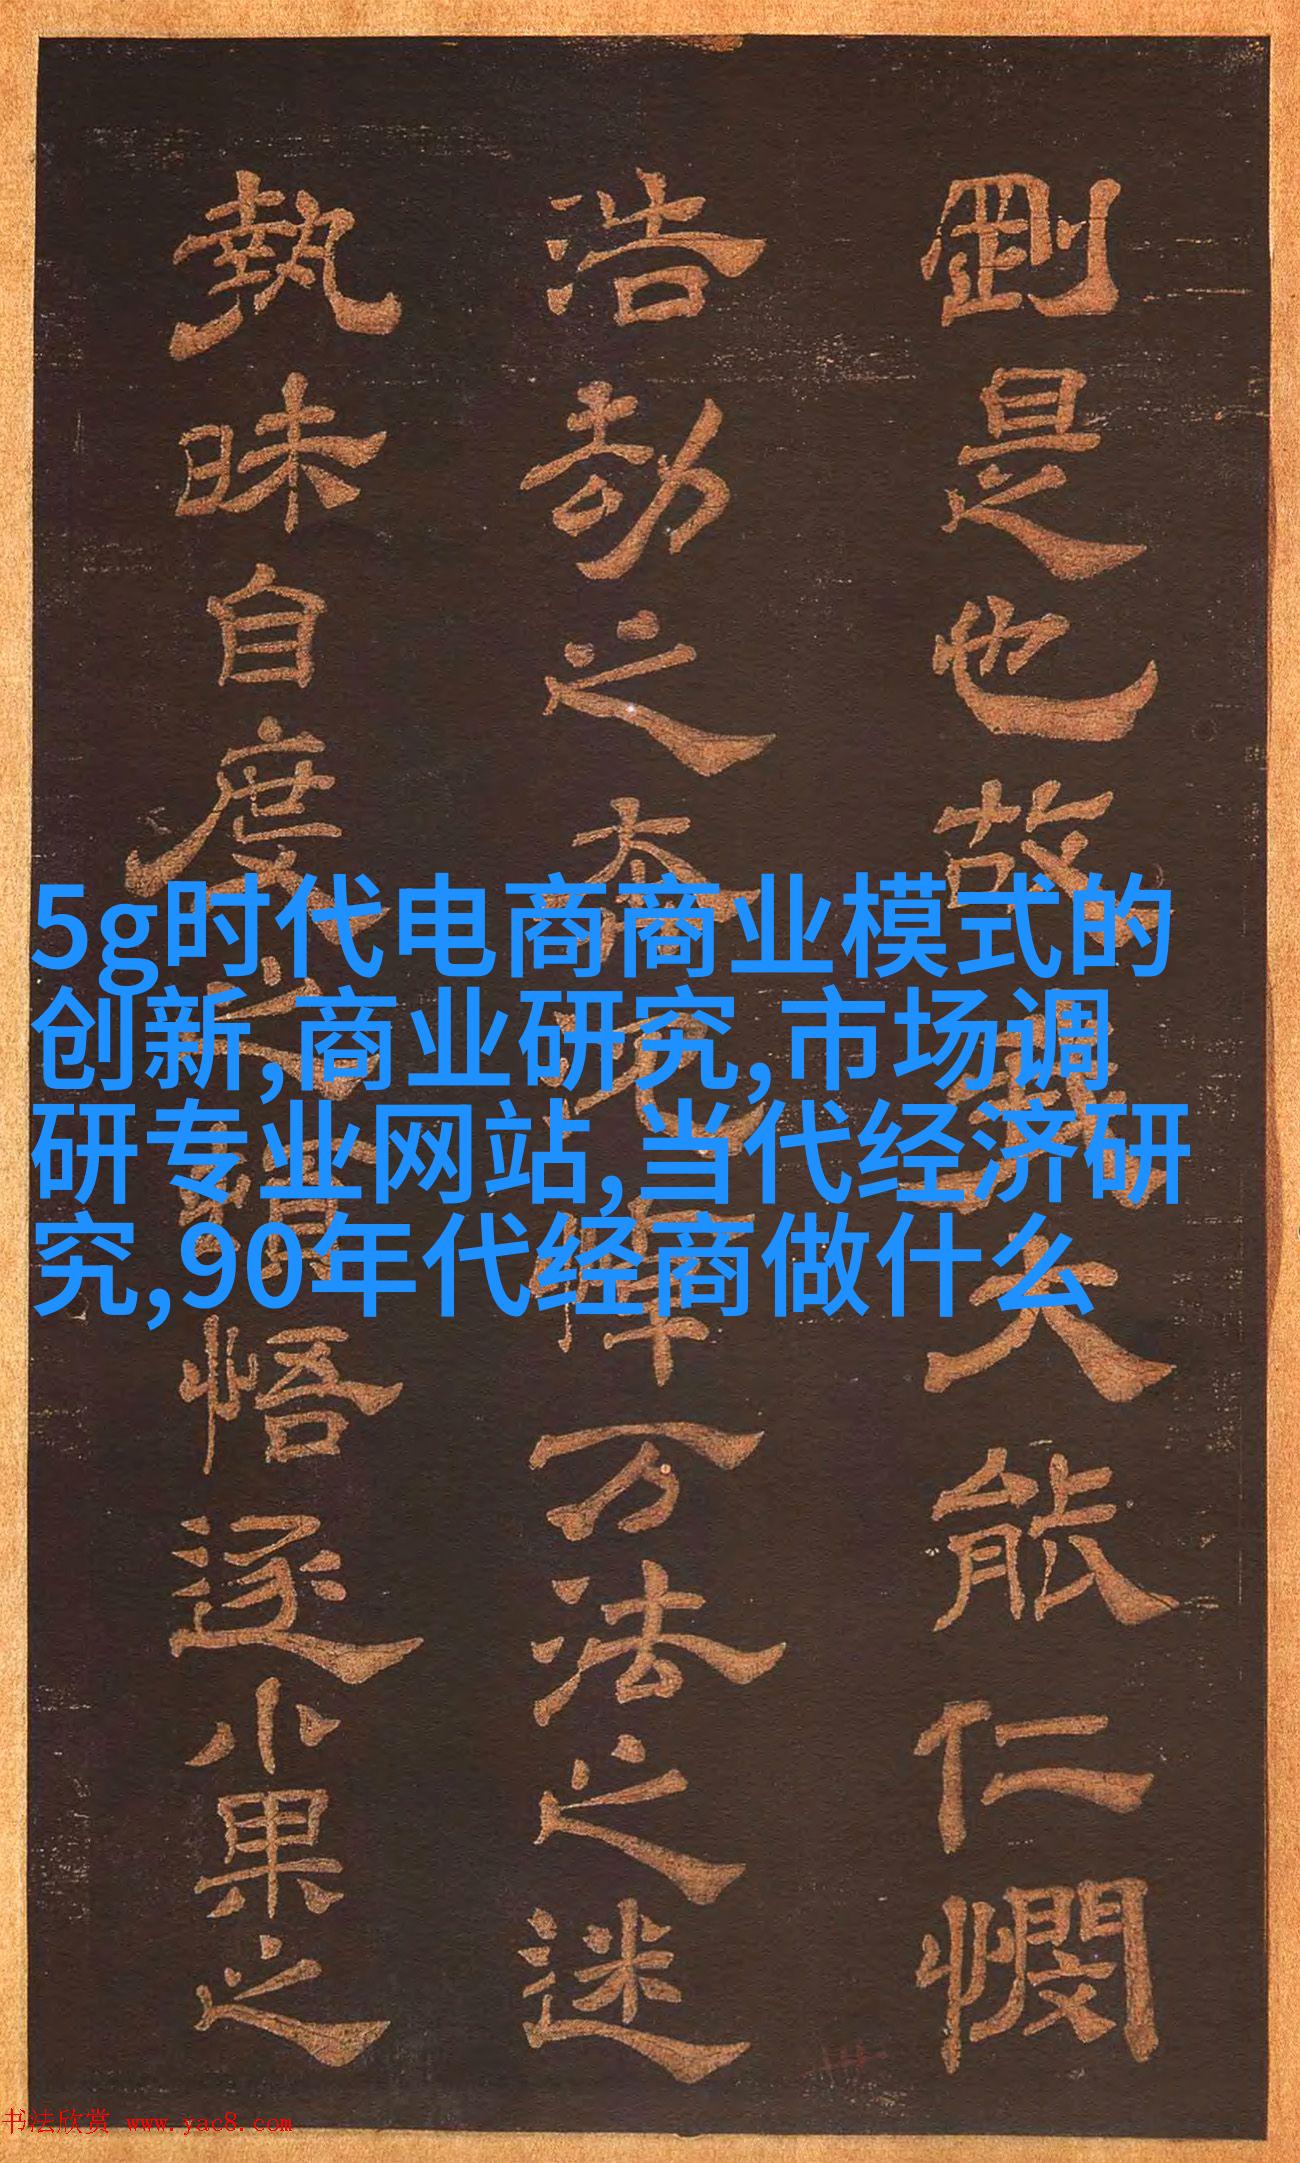 剛是也故我大能仁憫
浩劫之沉悼万法之迷
執昧自度之悟逐小果之
5g时代电商商业模式的
创新,商业研究,市场调
研专业网站,当代经济研
究,90年代经商做什么
书法欣赏 www.yac8.com